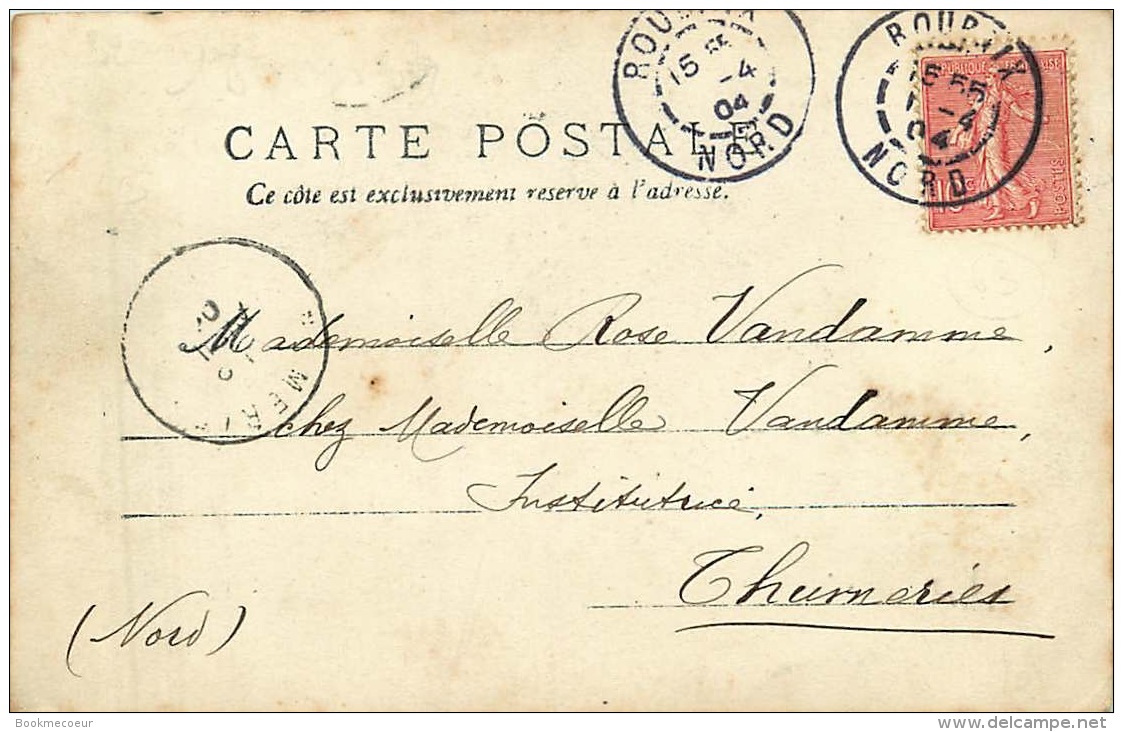 ROUBAIX
15 55
-4
04
NORD
ROUBAIX
15 55
1 -4
04
NORD
REPUBLIQUE FRANÇAISE
POSTES
10 c
CARTE POSTALE
Ce côte est exclusivement reserve à l'adresse.
MERI
Mademoiselle Rose Vandamme,
chez Mademoiselle Vandamme,
Institutrice,
Thumeries
(Nord)
Bookmecoeur
www.delcampe.net